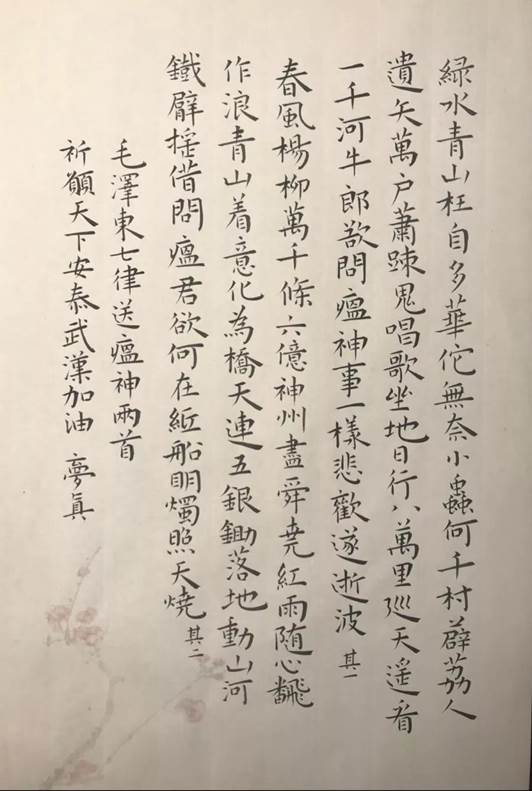 緑水青山枉自多華佗無奈小蟲何千村薜荔人
遺矢萬户蕭踈鬼唱歌坐地日行八萬里廵天遥看
一千河牛郎欲問瘟神事一樣悲歡逐逝波 其一
春風楊柳萬千條六億神州盡舜尭紅雨随心飜
作浪青山着意化為橋天連五銀鋤落地動山河
鐵臂揺借問瘟君欲何在紙船明燭照天燒 其二
毛澤東七律送瘟神兩首
祈願天下安泰武漢加油 夢真